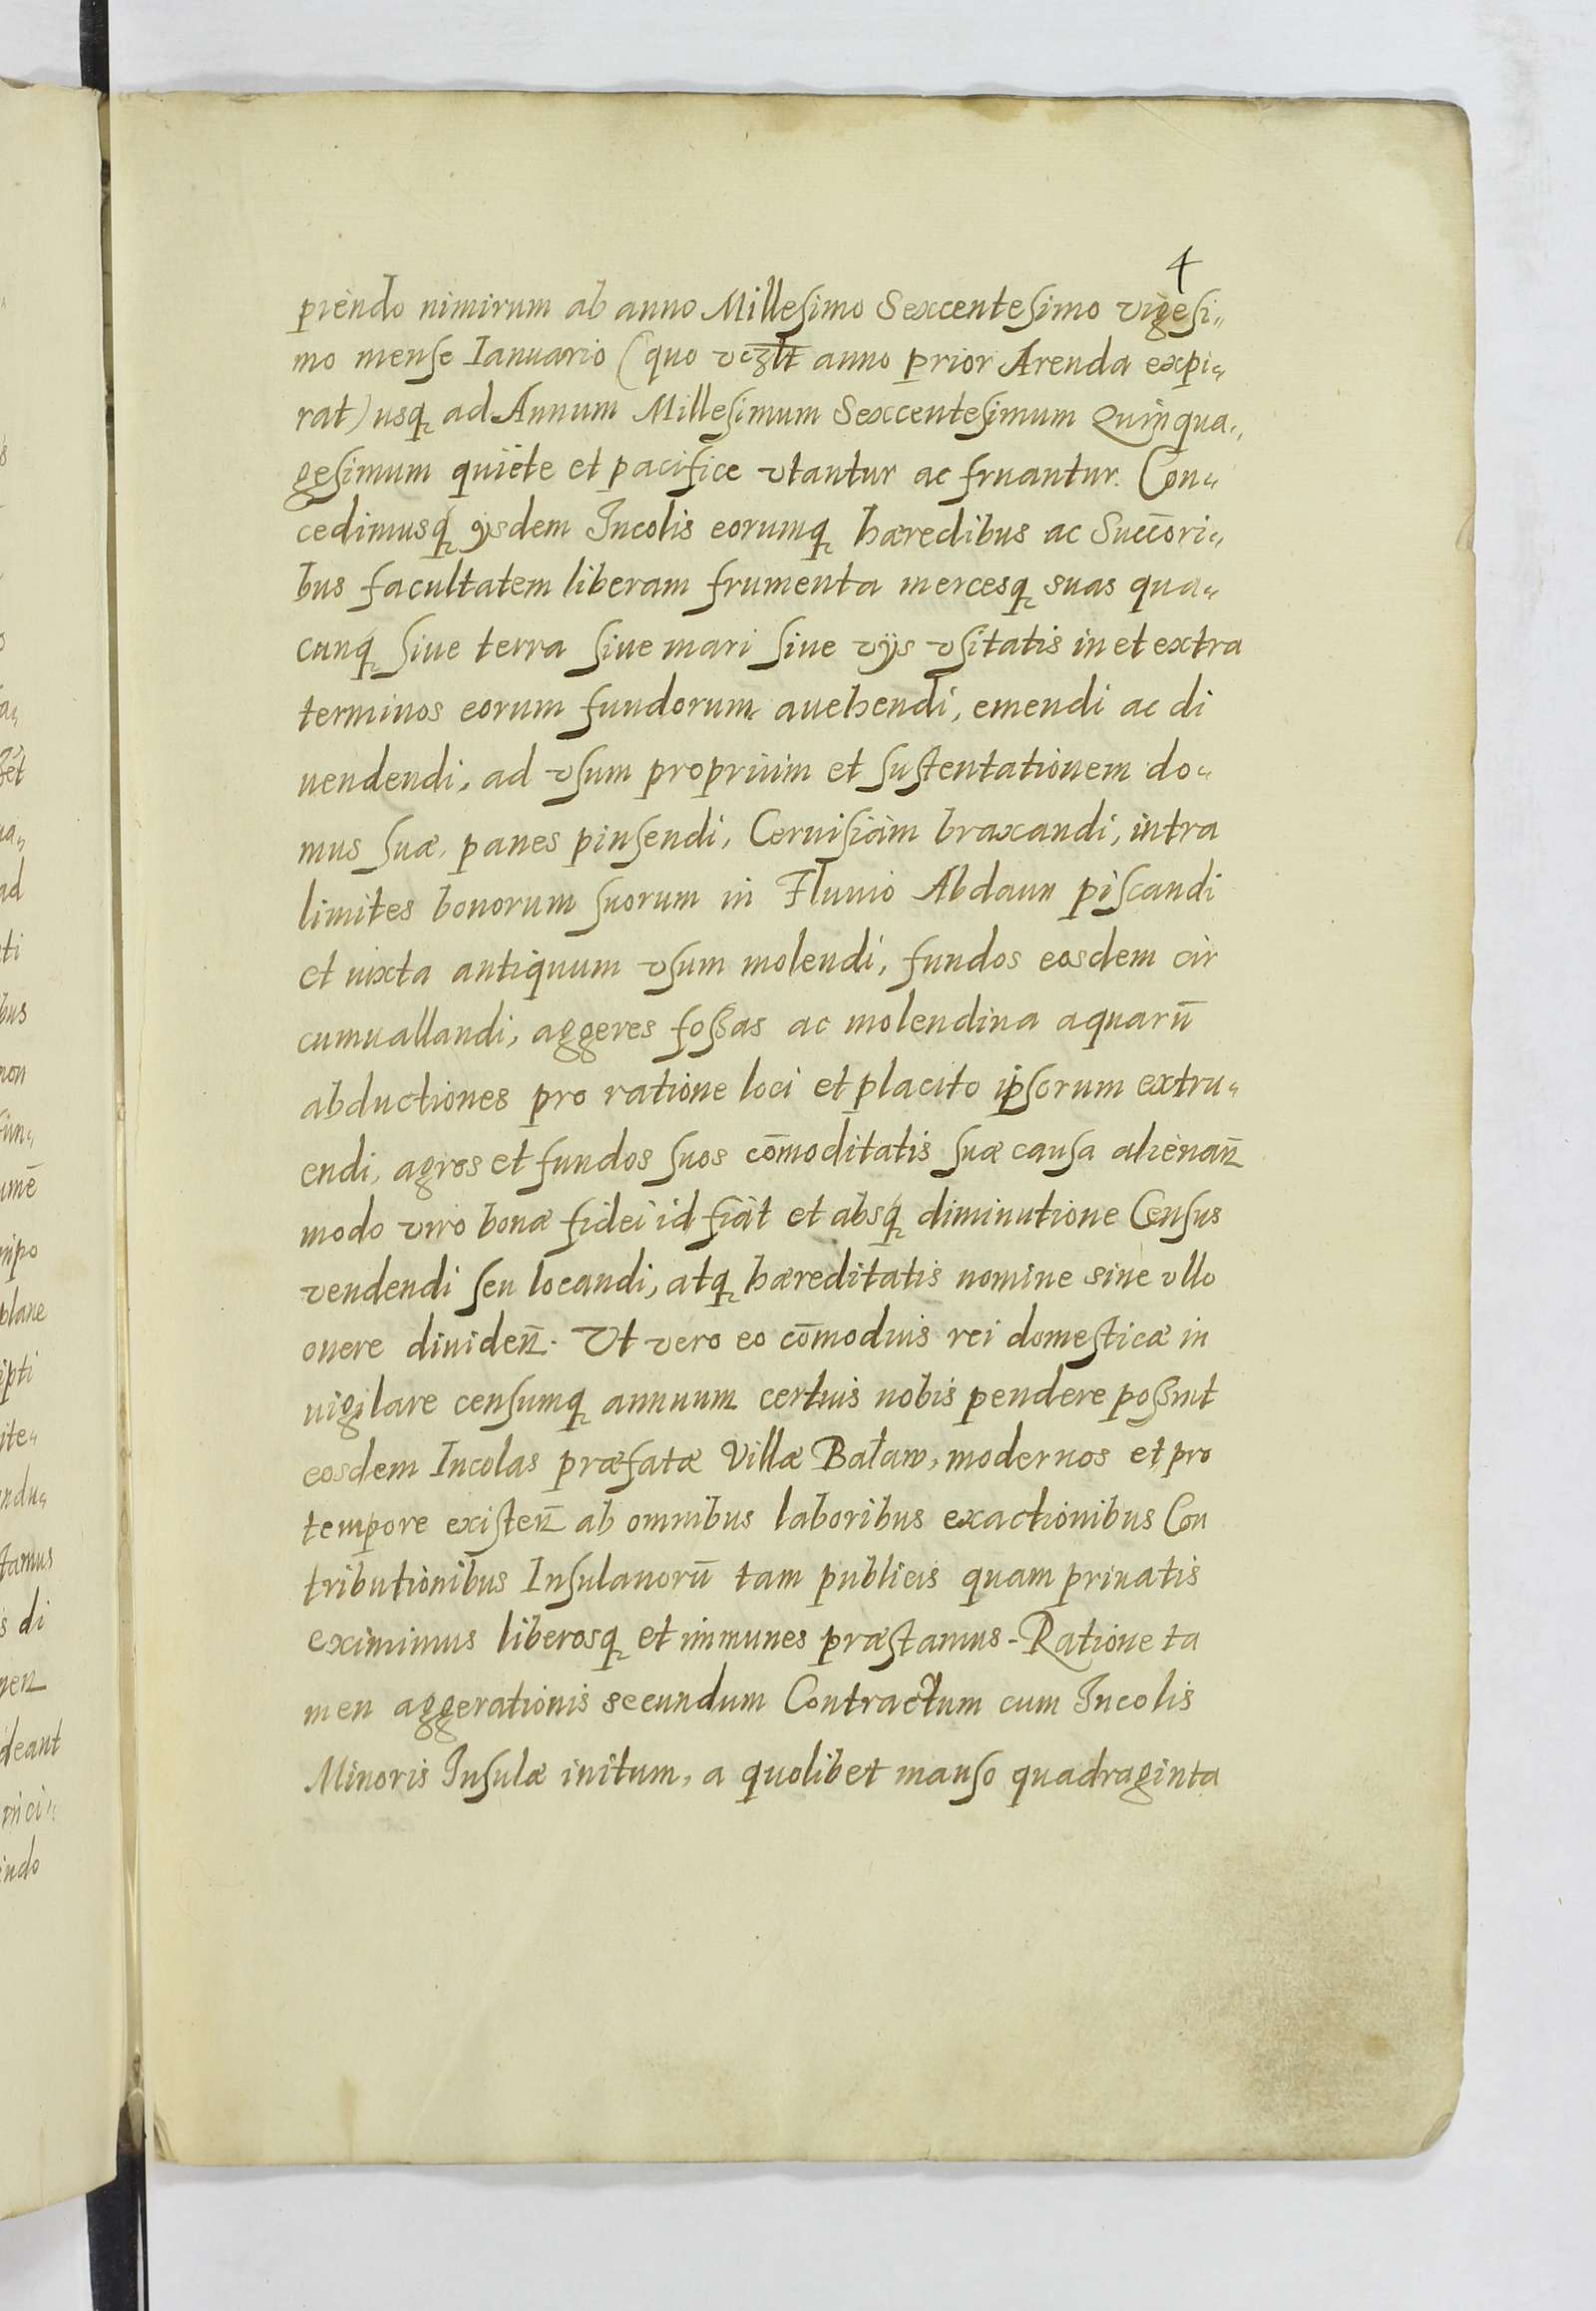 4
piendo nimirum ab anno Millesimo Sexcentesimo vigesi„
mo mense Ianuario (quo anno prior Arenda expi„
rat) usq ad Annum Millesimum Sexcentesimum Quinqua„
gesimum quiete et pacifice vtantur ac fruantur. Con„
cedimusq ysdem Incolis eorumq hæredibus ac Succori„
bus facultatem liberam frumenta mercesq suas qua„
cunq siue terra siue mari siue vijs vsitatis in et extra
terminos eorum fundorum auehendi, emendi ac di
uendendi, ad vsum proprium et sustentationem do„
mus suæ, panes pinsendi, Ceruisiam braxandi, intra
limites bonorum suorum in Fluuio Abdaun piscandi
et iuxta antiquum vsum molendi, fundos eosdem cir
cumuallandi, aggeres fossas ac molendina aquarū
abductiones pro ratione loci et placito ipsorum extru„
endi, agros et fundos suos cōmoditatis suæ causa alienan̄
modo viro bonæ fidei id fiat et absq diminutione Census
vendendi seu locandi, atq hæreditatis nomine sine vllo
onere diuiden̄. Vt vero eo cōmodius rei domesticæ in
uigilare censumq annuum certius nobis pendere possint
eosdem Incolas præfatæ Villæ Baław, modernos et pro
tempore existen̄ ab omnibus laboribus exactionibus Con
tributionibus Insulanorū tam publicis quam priuatis
eximimus liberosq et immunes præstamus - Ratione ta
men aggerationis secundum Contractum cum Incolis
Minoris Insulæ initum, a quolibet manso quadraginta